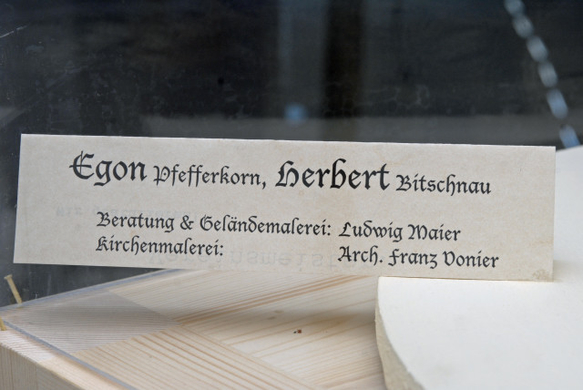 Egon Pfefferkorn, Herbert Bitschnau
Beratung & Geländemalerei: Ludwig Maier
Kirchenmalerei: Arch. Franz Vonier